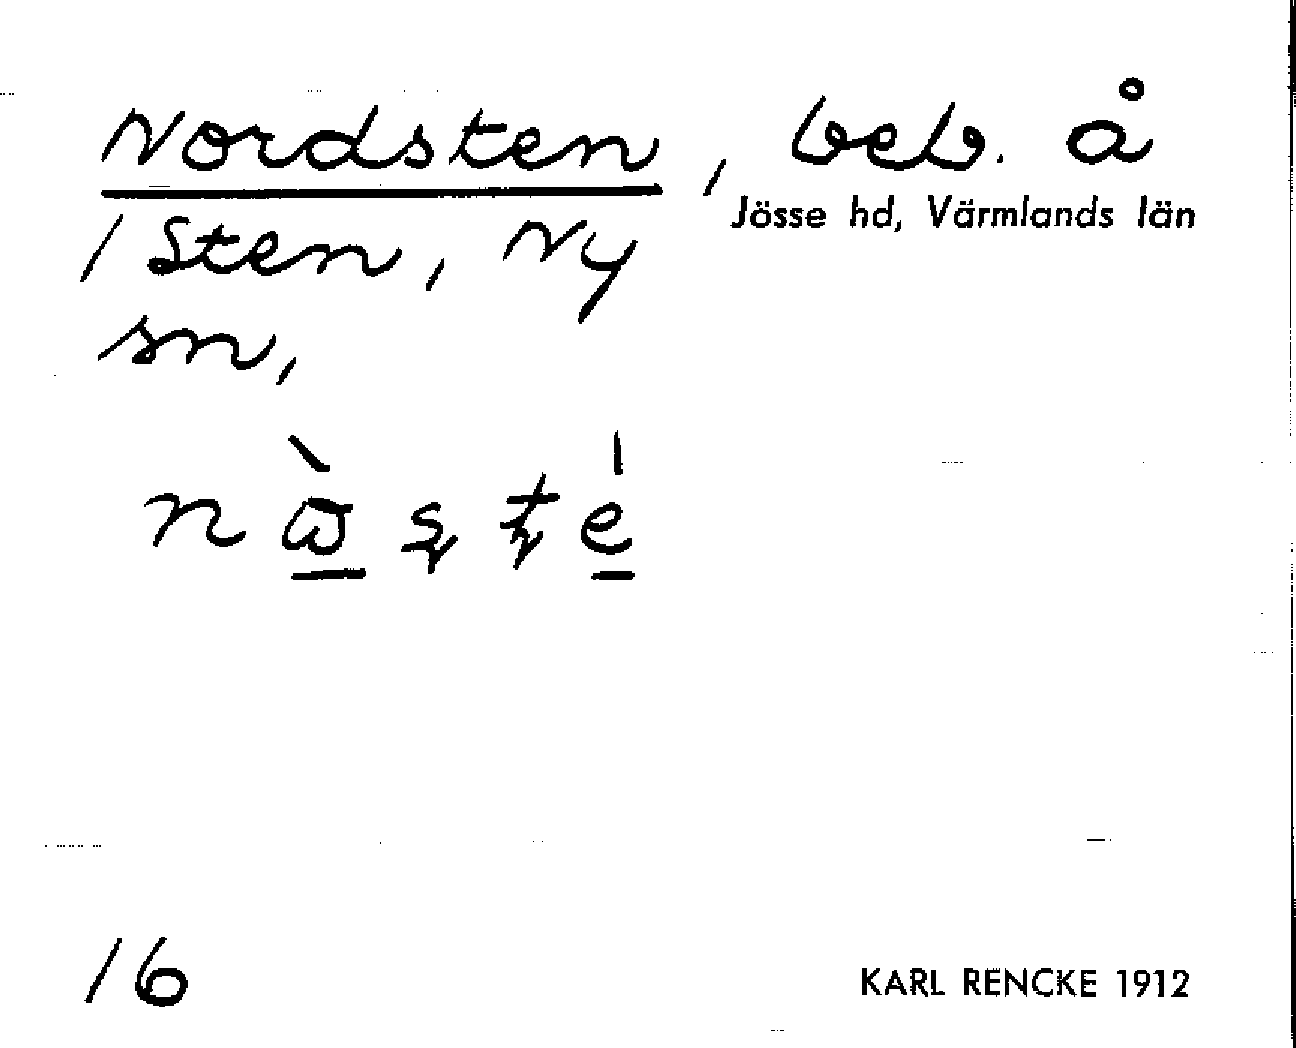 Nordsten, beb. å
Jösse hd, Värmlands län
1 Sten, Ny
sn,
16
KARL RENCKE 1912